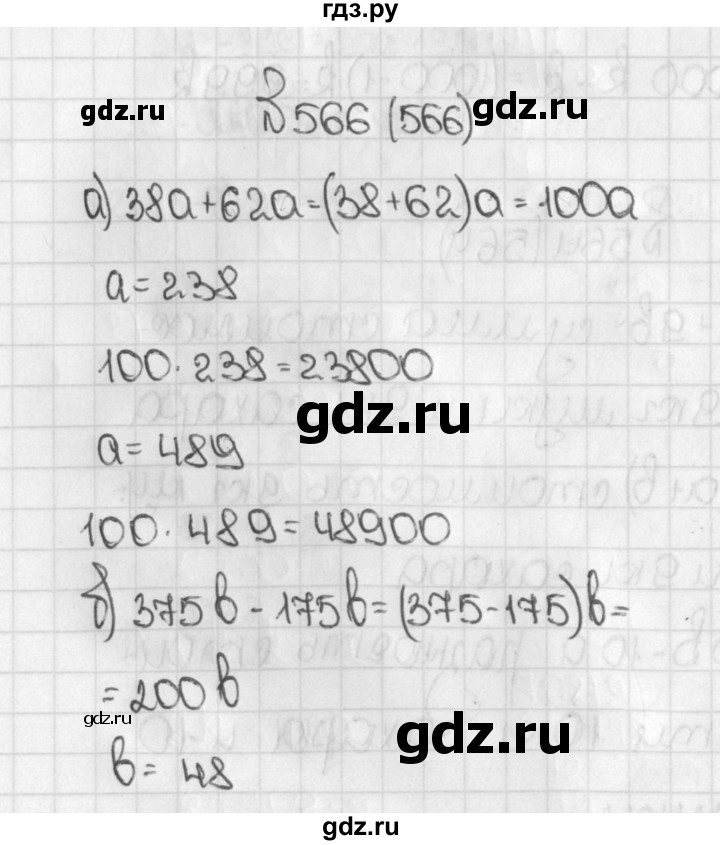 гдз.ру
gdz.ru
№ 566 (566)
gdz.ru
а) 38a+62a=(38+62)a=100a
a=238
100·238=23800
gdz.ru
a=489
100·489=48900
б) 375в-175в=(375-175)в=
=200в
gdz.ru
gdz.ru
в=48
gdz.ru